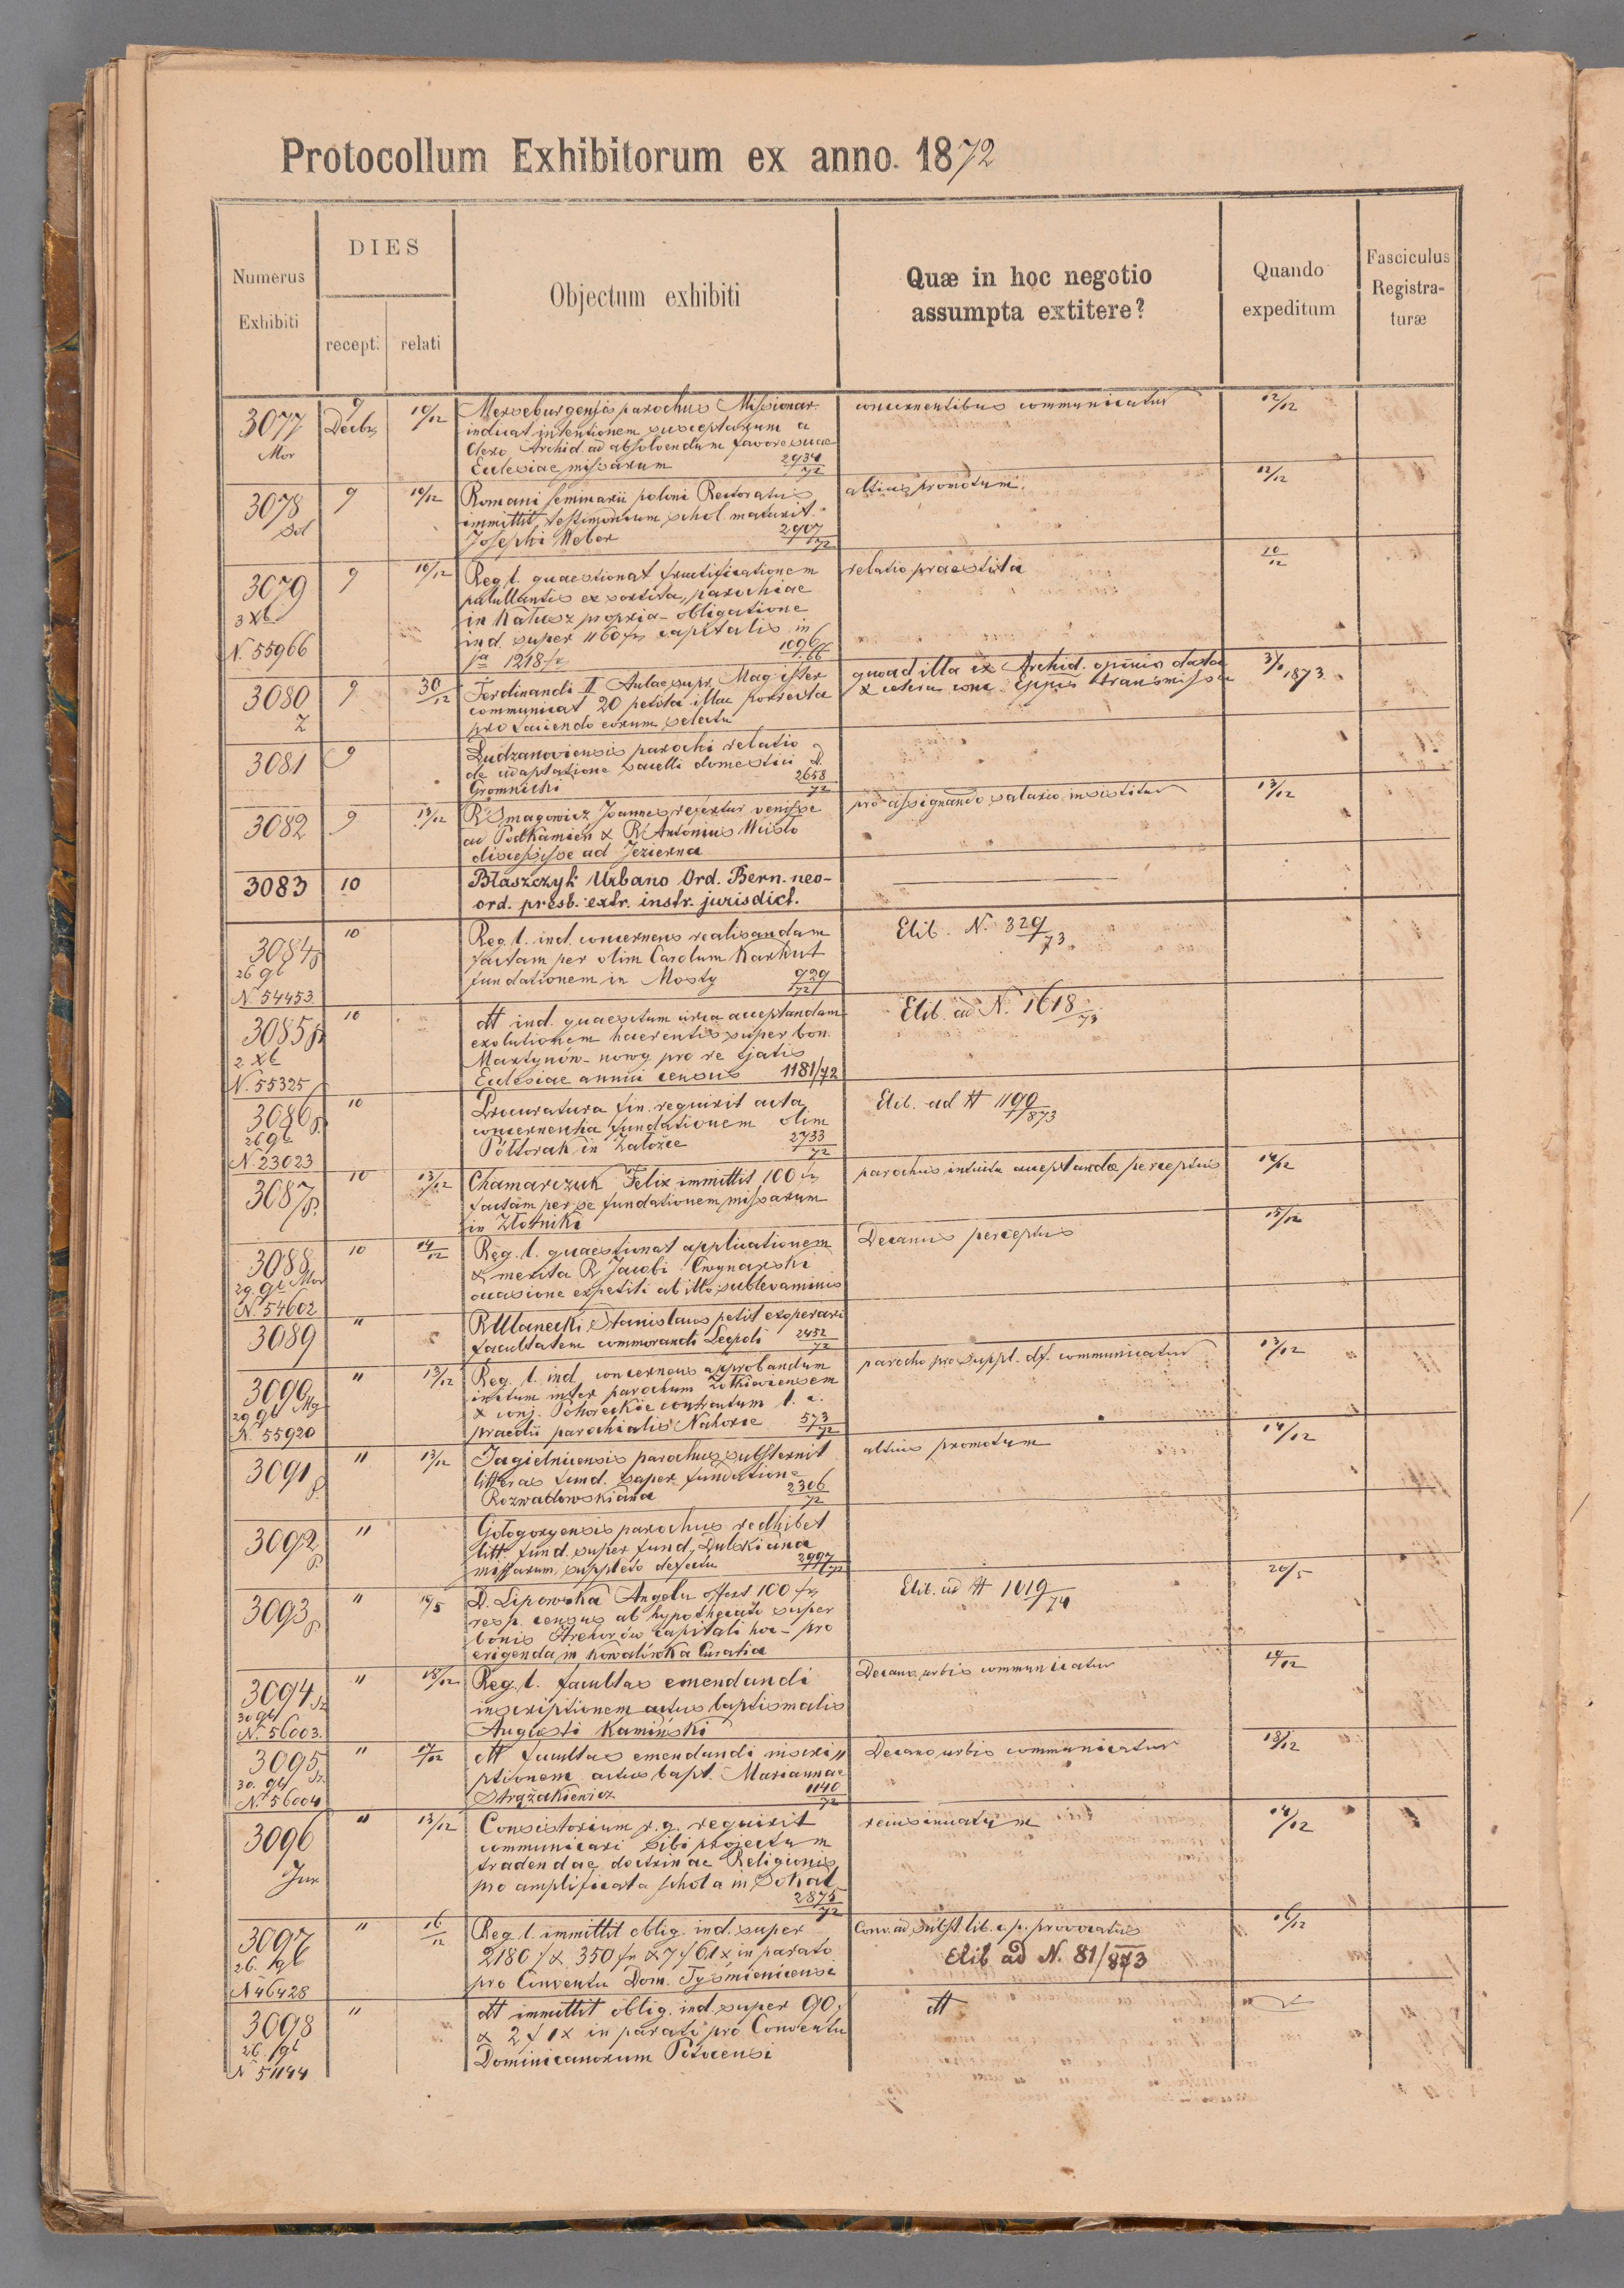 Protocollum Exhibitorum ex anno. 1872
Numerus Exhibiti
DIES
recept:
relati
Objectum exhibiti
Quæ in hoc negotio
assumpta extitere?
Quando
expeditum
Fasciculus
Registra-
turæ
3077 9 10/12 Merseburgensis parochus Missionar. concernentibus communicatur 12/12
Mor Decbr indicat intentionem susceptarum a
Clero Archid. ad absolvendum favore suae
Ecclesiae missarum 2934/72
3078 9 10/12 Romani seminarii poloni Rectoratus altius promotum. 12/12
Sol immittit testimonium schol. maturit.
Josephi Weber 2907/72
3079 9 10/12 Reg. l. quaestionat fructificationem relatio praestita 10/12
3 Xb pullulantis ex sortita parochiae
in Kałusz propria obligatione
N. 55966 ind. super 1160 fr capitalis in
1218 fr 1096/66
3080 9 30/12 Ferdinandi II Aulae supr. Magister quoad illa ex Archid. opinio data 3/1 1873
Z communicat 20 petita illac porrecta & cetera conc. Eppis transmissa
pro faciendo eorum selectu
3081 9 Ludzanoviensis parochi relatio
de adaptatione sacelli domestici D.
Gromnicki 2658/72
3082 9 13/12 R Smagowicz Joannes refertur venisse pro assignando salario insistitur 13/12
ad Podkamień & R Antonius Miisło
discessisse ad Jezierna
3083 10 Błaszczyk Urbano Ord. Bern. neo-
ord. presb. extr. instr. jurisdict.
3084 10 Reg. l. ind. concernens realisandam Elib. N. 329/73
26 9b factam per olim Carolum Karhut
N. 54453 fundationem in Mosty 929/72
3085 10 dtt ind. quaesitum circa acceptandam Elib. ad N. 1618/73
2 Xb exolutionem haerentis super bon.
Martynów-nowy pro re
N. 55325 Ecclesiae annui census 1181/72
3086 10 Procuratura fin. requirit acta Elib. ad # 1190/873
26 9b concernentia fundationem olim
N. 23023 Półtorak in Załoźce 2733/72
3087 10 13/12 Chamarczuk Felix immittit 100 fr parochus intuitu acceptandae perceptus 14/12
factam per se fundationem missarum
in Złotniki
3088 10 14/12 Reg. l. quaestionat applicationem Decanus perceptus 15/12
29. 9b Mor & merita R Jacobi Cwynarski
N. 54602 occasione expetiti ab illo sublevaminis
3089 " R Ulanecki Stanislaus petit exoperari
facultatem commorandi Leopoli 2452/72
3090 " 13/12 Reg. l. ind. concernens approbandum parocho pro suppl. df. communicatur 13/12
29 9b Mg initum inter parochum Żołkiewiensem
N. 55920 & conj. Pohoreckie contractum l. c.
praedii parochialis Nahorce 573/72
3091 " 13/12 Jagielnicensis parochus substernit altius promotum 14/12
litteras fund. super fundatione
Rozwadowskiana 2306/72
3092 " Gołogoryensis parochus redhibet
litt. fund. super fund. Dulskiana
missarum, suppleto defectu 2997/72
3093 " 10/5 D. Lipowska Angela offert 100 fr Elib. ad # 1019/74 20/5
resp. census ab hypothecato super
bonis capitali hoc pro
erigenda in Kowalówka Curatia
3094 " 18/12 Reg. l. facultas emendandi Decano urbis communicatur 19/12
30 9b inscriptionem actus baptismalis
N. 56003. Augusti Kamiński
3095 " 17/12 dtt facultas emendandi inscri- Decano urbis communicatur 18/12
30. 9b ptionem actus bapt. Mariannae
N. 56004 Strążakiewicz 1140/72
3096 " 13/12 Consistorium r. g. requirit reinsinuatum 14/12
communicari sibi projectum
Jux tradendae doctrinae Religionis
pro amplificata schola in Sokal
2875/72
3097 " 16/12 Reg. l. immittit oblig. ind. super Conv. ad subst. lib. a p. provocatus 16/12
26. 9b 2180 f & 350 fr & 7 f 61 x in parato Elib ad N. 81/873
N 46428 pro Conventu Dom. Tyśmienicensi
3098 " dtt immittit oblig. ind. super 90 f dtt
26. 9b & 2 f 1 x in parato pro Conventu
N 51144 Dominicanorum Potocensi